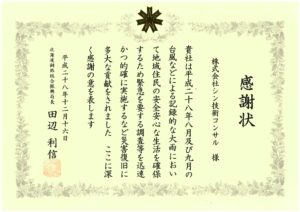 感謝状
株式会社シン技術コンサル 様
貴社は平成二十八年八月及び九月の
台風などによる記録的な大雨におい
て地域住民の安全安心な生活を確保
するため緊急を要する調査等を迅速
かつ的確に実施するなど災害復旧に
多大な貢献をされました ここに深
く感謝の意を表します
平成二十八年十二月十六日
北海道釧路総合振興局長 田辺 利信